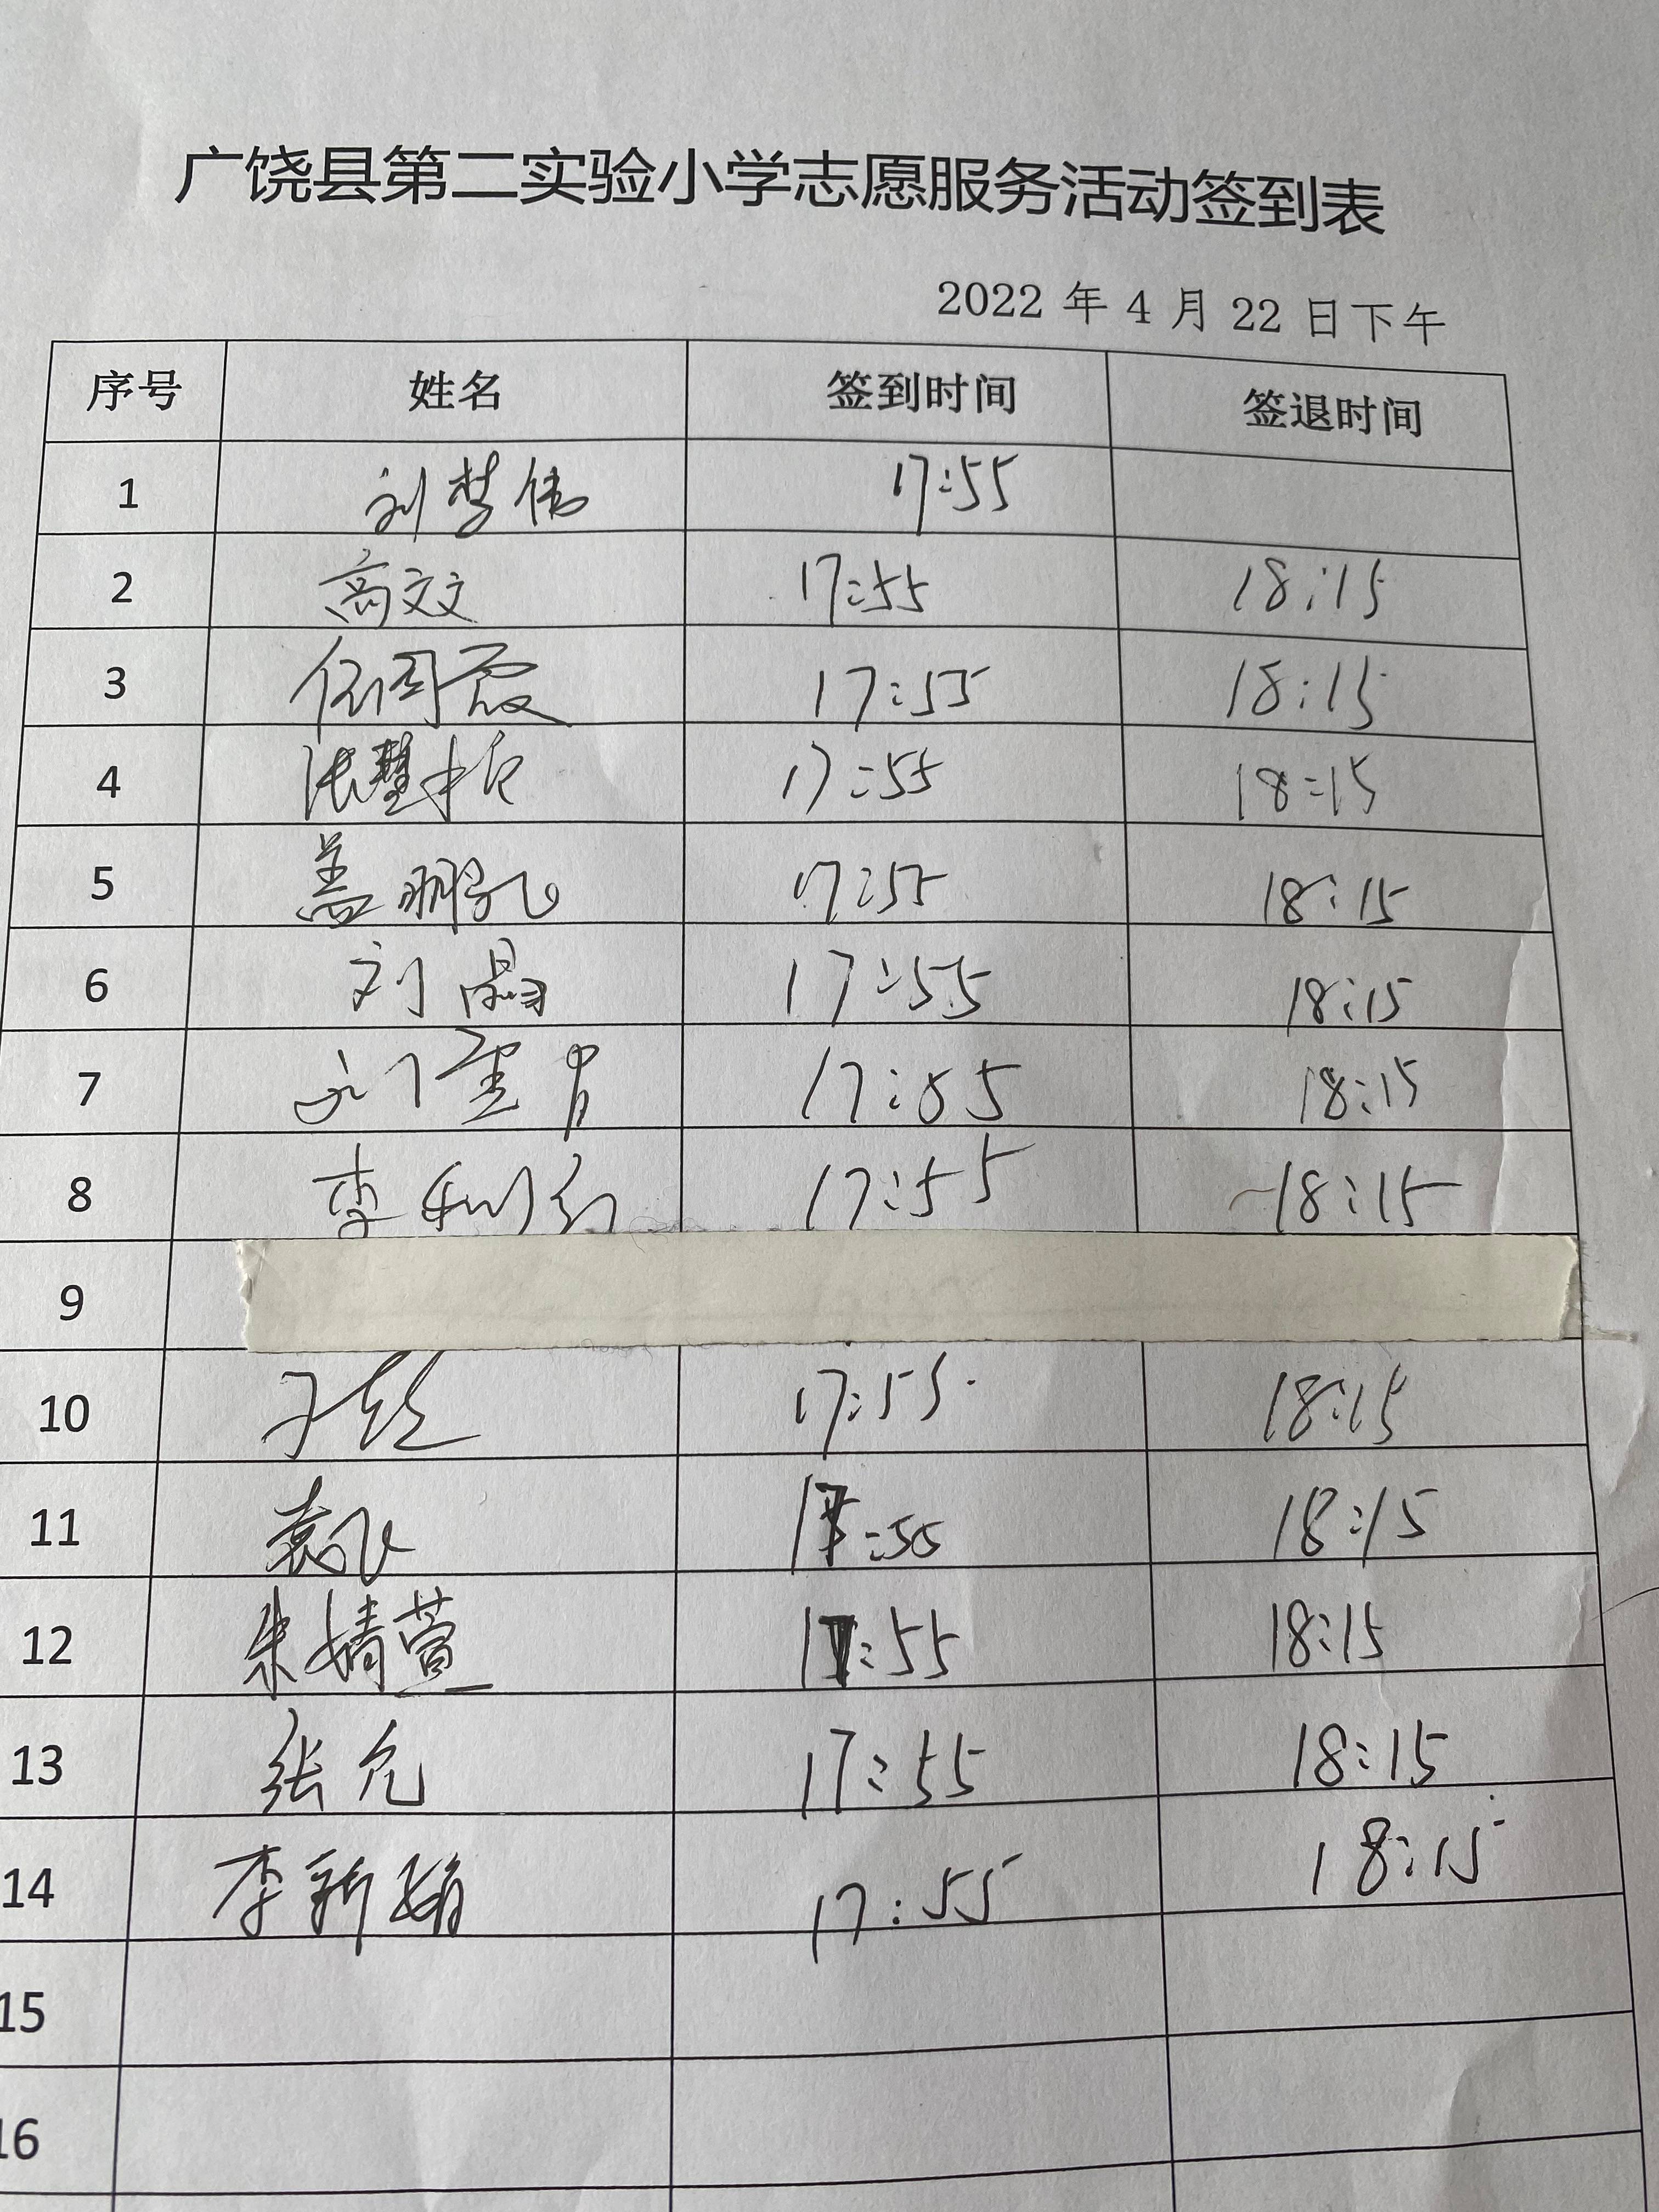 广饶县第二实验小学志愿服务活动签到表
2022 年 4 月 22 日下午
序号 姓名 签到时间 签退时间
1 刘梦伟 17:55
2 高文文 17:55 18:15
3 17:55 18:15
4 17:55 18:15
5 盖鹏飞 17:55 18:15
6 刘晶 17:55 18:15
7 17:55 18:15
8 李利红 17:55 18:15
9
10 17:55 18:15
11 袁飞 17:55 18:15
12 朱婧萱 17:55 18:15
13 张允 17:55 18:15
14 李新娟 17:55 18:15
15
16